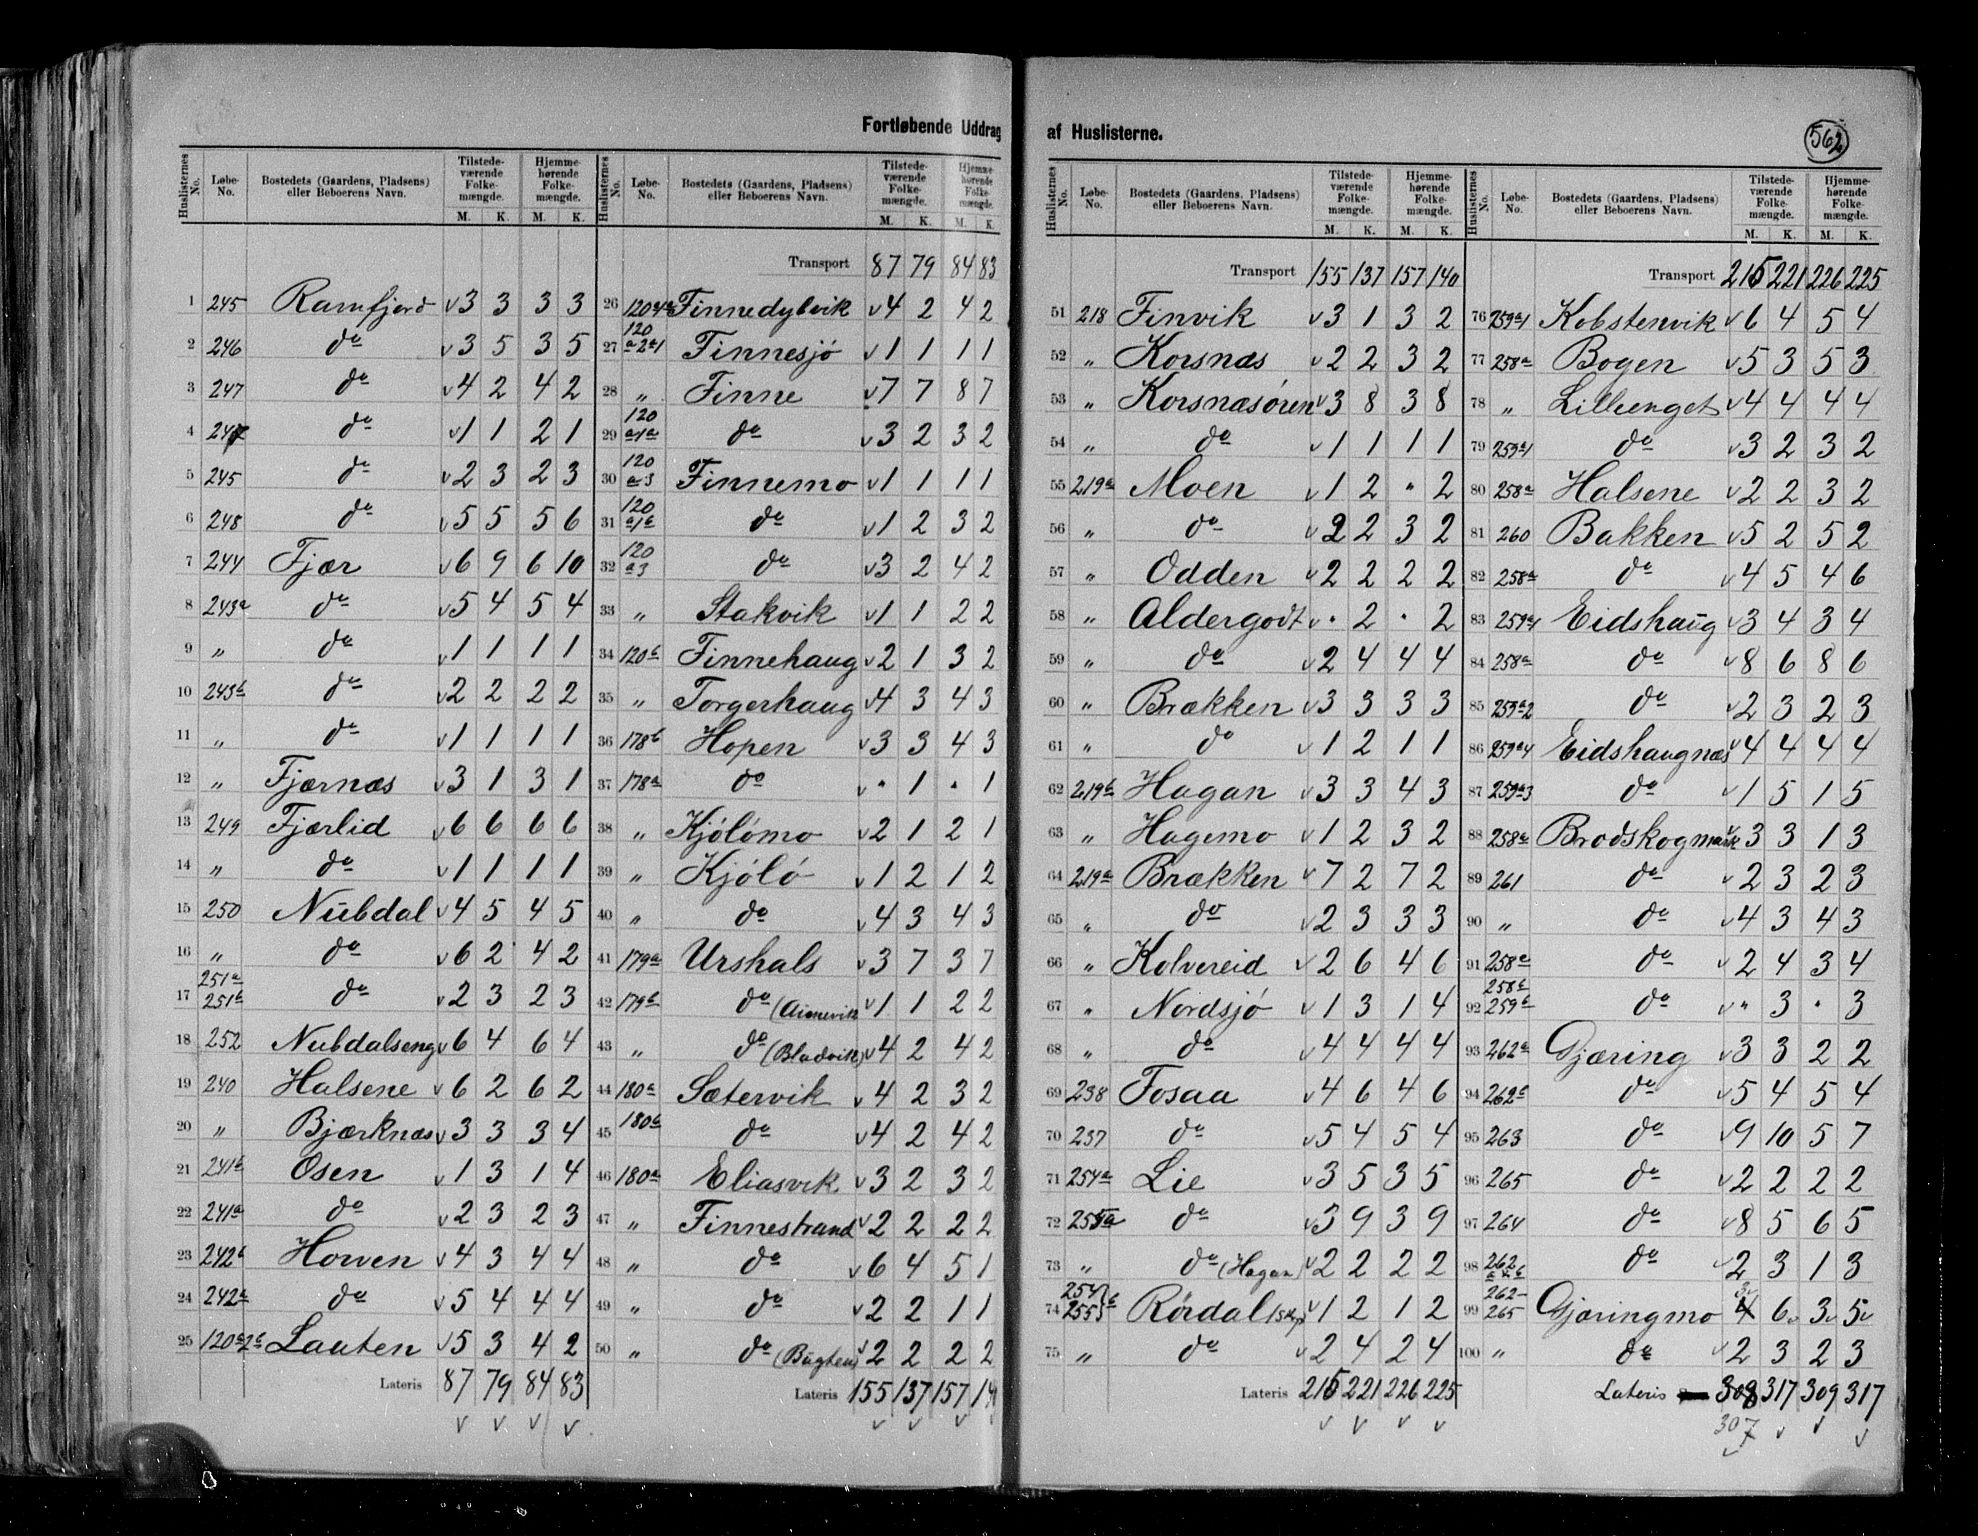 Fortløbende Uddrag af Huslisterne.
562
Huslisternes No. | Løbe-No. | Bostedets (Gaardens, Pladsens) eller Beboerens Navn. | Tilstedeværende Folkemængde. M. K. | Hjemmehørende Folkemængde. M. K.
1 245 Ramfjord v 3 3 3 3
2 246 do v 3 5 3 5
3 247 do v 4 2 4 2
4 247 do v 1 1 2 1
5 245 do v 2 3 2 3
6 248 do v 5 5 5 6
7 244 Fjær v 6 9 6 10
8 243a do v 5 4 5 4
9 " do v 1 1 1 1
10 243b do v 2 2 2 2
11 " do v 1 1 1 1
12 " Fjærnæs v 3 1 3 1
13 249 Fjærlid v 6 6 6 6
14 " do v 1 1 1 1
15 250 Nubdal v 4 5 4 5
16 " do v 6 2 4 2
17 251a 251b do v 2 3 2 3
18 252 Nubdalseng v 6 4 6 4
19 240 Halsene v 6 2 6 2
20 " Bjærknæs v 3 3 3 4
21 241b Osen v 1 3 1 4
22 241a do v 2 3 2 3
23 242b Horven v 4 3 4 4
24 242a do v 5 4 4 4
25 120a2b Lauten v 5 3 4 2
Lateris 87 79 84 83
v v v v
Huslisternes No. | Løbe-No. | Bostedets (Gaardens, Pladsens) eller Beboerens Navn. | Tilstedeværende Folkemængde. M. K. | Hjemmehørende Folkemængde. M. K.
Transport 87 79 84 83
26 120a4a Finnedybvik v 4 2 4 2
27 120 a2a1 Finnesjø v 1 1 1 1
28 " Finne v 7 7 8 7
29 120 a1a do v 3 2 3 2
30 120 a3 Finnemo v 1 1 1 1
31 120 a1b do v 1 2 3 2
32 120 a3 do v 3 2 4 2
33 " Stakvik v 1 1 2 2
34 120b Finnehaug v 2 1 3 2
35 " Torgerhaug v 4 3 4 3
36 178b Hopen v 3 3 4 3
37 178a do v " 1 " 1
38 " Kjølømo v 2 1 2 1
39 " Kjølø v 1 2 1 2
40 " do v 4 3 4 3
41 179a Urshals v 3 7 3 7
42 179b do v 1 1 2 2
43 " do (Bladvik) v 4 2 4 2
44 180a Sætervik v 4 2 3 2
45 180b do v 4 2 4 2
46 180a Eliasvik v 3 2 3 2
47 " Finnestrand v 2 2 2 2
48 " do v 6 4 5 1
49 " do v 2 2 1 1
50 " do (Bugten) v 2 2 2 2
Lateris 155 137 157 14
v v v v
Huslisternes No. | Løbe-No. | Bostedets (Gaardens, Pladsens) eller Beboerens Navn. | Tilstedeværende Folkemængde. M. K. | Hjemmehørende Folkemængde. M. K.
Transport 155 137 157 140
51 218 Finvik v 3 1 3 2
52 " Korsnæs v 2 2 3 2
53 " Korsnæsøren v 3 8 3 8
54 " do v 1 1 1 1
55 219a Moen v 1 2 " 2
56 " do v 2 2 3 2
57 " Odden v 2 2 2 2
58 " Aldergodt v " 2 " 2
59 " do v 2 4 4 4
60 " Brækken v 3 3 3 3
61 " do v 1 2 1 1
62 219b Hagan v 3 3 4 3
63 " Hagemo v 1 2 3 2
64 219a Brækken v 7 2 7 2
65 " do v 2 3 3 3
66 " Kolvereid v 2 6 4 6
67 " Nordsjø v 1 3 1 4
68 " do v 4 4 4 4
69 238 Fosaa v 4 6 4 6
70 237 do v 5 4 5 4
71 254a Lie v 3 5 3 5
72 255a do v 3 9 3 9
73 " do (Hagan) v 2 2 2 2
74 254 255 b Rørdal v 1 2 1 2
75 " do v 2 4 2 4
Lateris 215 221 226 225
v v v v
Huslisternes No. | Løbe-No. | Bostedets (Gaardens, Pladsens) eller Beboerens Navn. | Tilstedeværende Folkemængde. M. K. | Hjemmehørende Folkemængde. M. K.
Transport 215 221 226 225
76 259a1 Kobstenvik v 6 4 5 4
77 258a Bogen v 5 3 5 3
78 " Lilleenget v 4 4 4 4
79 259a1 do v 3 2 3 2
80 258a Halsene v 2 2 3 2
81 260 Bakken v 5 2 5 2
82 258a do v 4 5 4 6
83 259a1 Eidshaug v 3 4 3 4
84 258a do v 8 6 8 6
85 259a2 do v 2 3 2 3
86 259a4 Eidshaugnæs v 4 4 4 4
87 259a3 do v 1 5 1 5
88 258a Brodskogmark v 3 3 1 3
89 261 do v 2 3 2 3
90 " do v 4 3 4 3
91 258a do v 2 4 3 4
92 258b 259b do v " 3 " 3
93 262a Gjæring v 3 3 2 2
94 262b do v 5 4 5 4
95 263 do v 9 10 5 7
96 265 do v 2 2 2 2
97 264 do v 8 5 6 5
98 262 a & b do v 2 3 1 3
99 262- 265 Gjæringmo 4 6 3 5
100 " do v 2 3 2 3
Lateris 308 317 309 317
307
v v v v